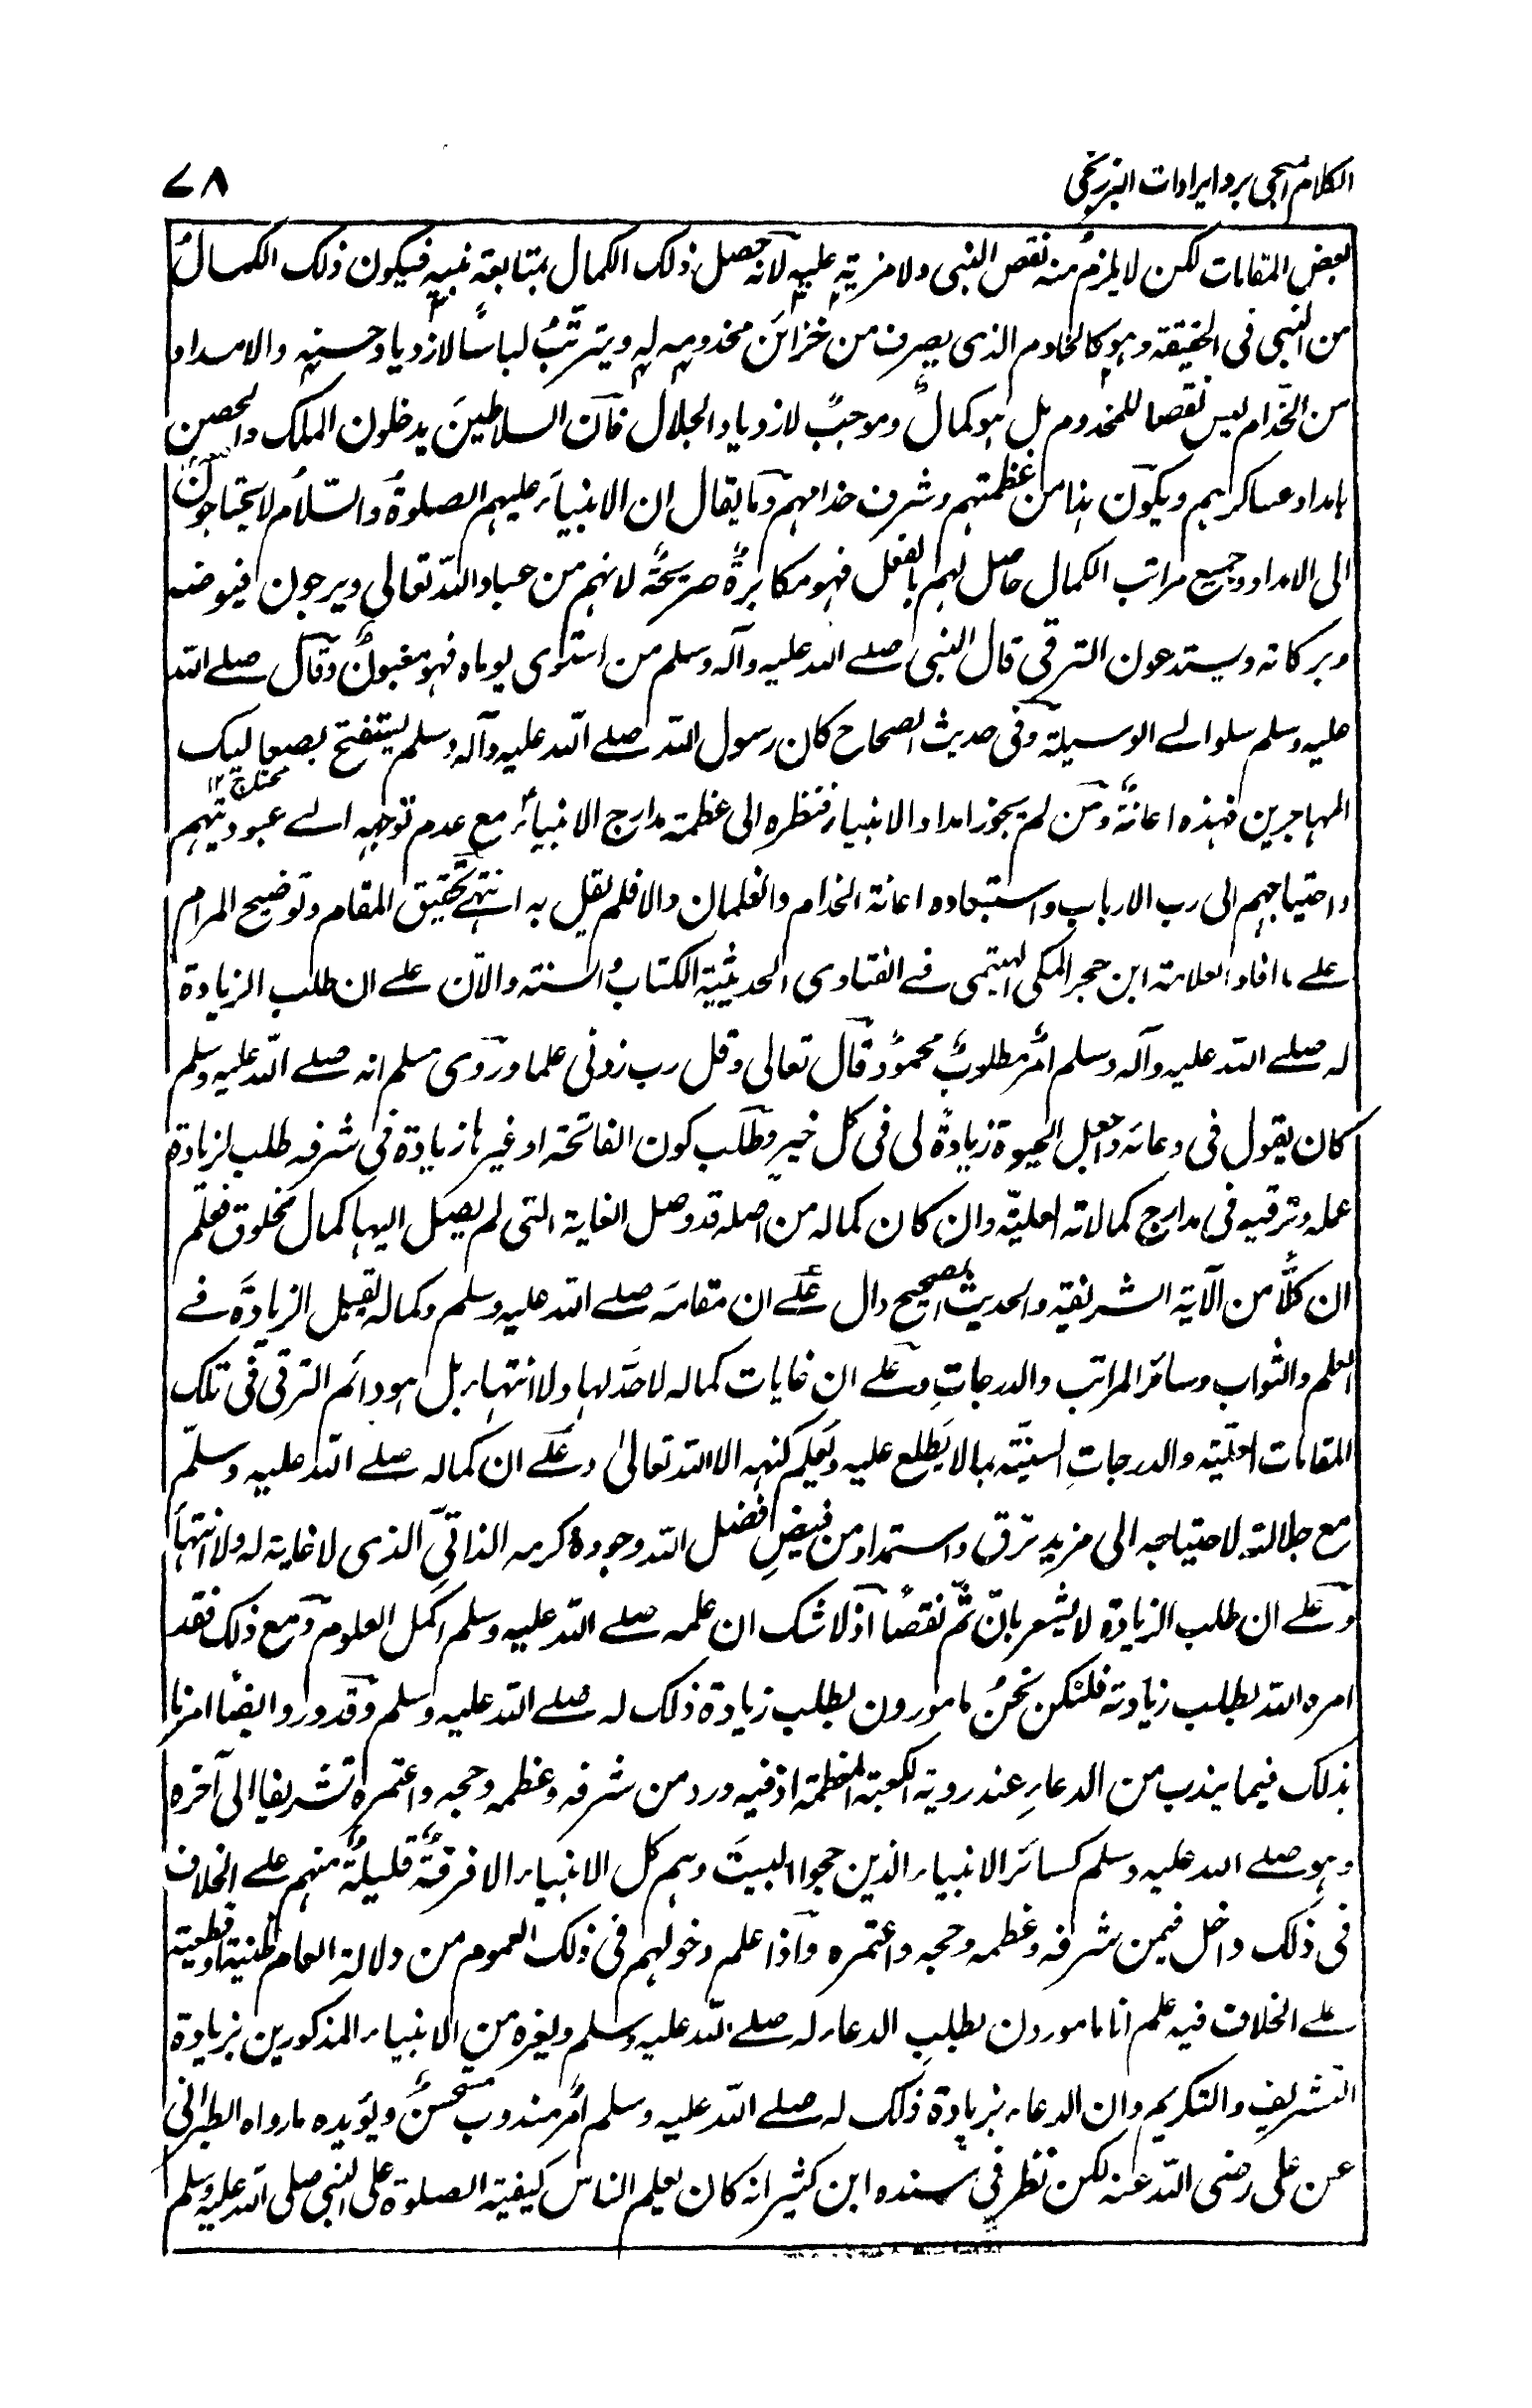 الكلام المنجى برد ايرادات البرزنجى
٧٨
بعض المقامات لكن لا يلزمُ منه نقص النبى ولا مزيةٍ عليه لانه حصل ذلك الكمال بمتابعة نبيهِ فيكون ذلك الكمالُ
من النبى فى الحقيقة وهو كالخادم الذى يصرف من خزائن مخدومه له ويترتّبُ لباسًا لازدياد حسنه والامداد
من الخدّام ليس نقصا للمخدوم بل هو كمالٌ وموجبٌ لازدياد الجلال فان السلاطينَ يدخلون الملك والحصن
بامداد عساكرهم ويكون هذا من عظمتهم وشرف خدامهم وما يقال ان الانبياء عليهم الصلوةُ والسّلامُ لا يحتاجون
الى الامداد وجميع مراتب الكمال حاصل لهم بالفعل فهو مكابرةٌ صريحةٌ لانهم من عباد الله تعالى ويرجون فيوضه
وبركاته ويستدعون الترقى قال النبى صلے الله عليه وآله وسلم من استوى يوماه فهو مغبونٌ وقال صلے الله
عليه وسلم سلوا لے الوسيلة وفى حديث الصحاح كان رسول الله صلے الله عليه وآله وسلم يستفتح بصعاليک
محتاج ١٢
المهاجرين فهذه اعانةٌ ومن لم يجوز امداد الانبياء فنظره الى عظمة مدارج الانبياء مع عدم توجهه الے عبوديتهم
واحتياجهم الى رب الارباب واستبعاده اعانة الخدام والغلمان والا فلم يقل به انتهے تحقيق المقام وتوضيح المرام
علے ما افاد العلامة ابن حجر المكى الهيتمى فے الفتاوى الحديثية الكتابُ والسنة والآن علے ان طلب الزيادة
له صلے الله عليه وآله وسلم امرٌ مطلوبٌ محمودٌ قال تعالى وقل رب زدنى علما وروى مسلم انه صلے الله عليه وسلم
كان يقول فى دعائه واجعل الحيوة زيادةً لى فى كل خيرٍ وطلب كون الفاتحة او غيرها زيادة فى شرفه طلب لزيادة
عمله وترقيه فى مدارج كمالاته العليّة وان كان كماله من اصله قد وصل الغاية التى لم يصل اليها كمال مخلوق فعلم
ان كلًّا من الآية الشريفة والحديث الصحيح دال علے ان مقامه صلے الله عليه وسلم وكماله يقبل الزيادة فے
العلم والثواب وسائر المراتب والدرجاتِ وعلے ان غايات كماله لا حدّ لها ولا انتهاء بل هو دائم الترقى فى تلك
المقامات العليّة والدرجاتِ السنيّة بما لا يَطلع عليه ويَعلم كنهه الا الله تعالىٰ وعلے ان كماله صلے الله عليه وسلّم
مع جلالته لاحتياجه الى مزيد ترق واستمداد من فيضِ فضل الله وجوده وكرمه الذاتىِّ الذى لا غاية له ولا انتهاء
وعلے ان طلب الزيادة لا يشعر بانّ ثَمّ نقصًا اذ لا شك ان علمه صلے الله عليه وسلم اكمل العلوم ومع ذلك فقد
امره الله بطلب زيادته فلنكن نحنُ مامورون بطلب زيادة ذلك له صلے الله عليه وسلم وقد ورد ايضًا امرنا
بذلك فيما يندب من الدعاءِ عند روية الكعبة المعظمة اذ فيه ورد من شرفه وعظمه وحجه واعتمره تشريفا الى آخره
وهو صلے الله عليه وسلم كسائر الانبياء الذين حجوا البيتَ وهم كل الانبياء الا فرقةٌ قليلةٌ منهم علے الخلاف
فى ذلك داخل فيمن شرفه وعظمه وحجه واعتمره واذا علم دخولهم فى ذلك العموم من دلالة العام ظنية او قطعية
علے الخلاف فيه علم انا مامورون بطلبِ الدعاء له صلے الله عليه وسلم ولغيره من الانبياء المذكورين بزيادة
التشريف والتكريم وان الدعاء بزيادة ذلك له صلے الله عليه وسلم امرٌ مندوب مستحسنٌ ويؤيده ما رواه الطبرانى
عن على رضى الله عنه لكن نظر فى سنده ابن كثير انه كان يعلم الناس كيفية الصلوة على النبى صلى الله عليه وسلم